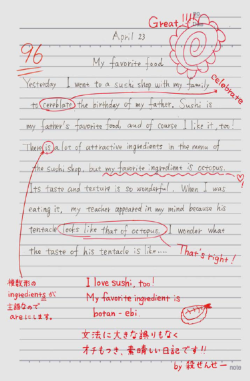 Great!!!
April 23
96
My favorite food
Yesterday I went to a sushi shop with my family
celebrate
to cerebrate the birthday of my father. Sushi is
my father's favorite food, and of course I like it, too!
There is a lot of attractive ingredients in the menu of
the sushi shop, but my favorite ingredient is octopus.
Its taste and texture is so wonderful. When I was
eating it, my teacher appeared in my mind because his
tentacle looks like that of octopus. I wonder what
the taste of his tentacle is like....
That's right!
複数形の
ingredientsが
主語なので
areにします。
I love sushi, too!
My favorite ingredient is
botan-ebi.
文法に大きな誤りもなく
オチもつき、素晴しい日記です!!
by 殺せんせー
note